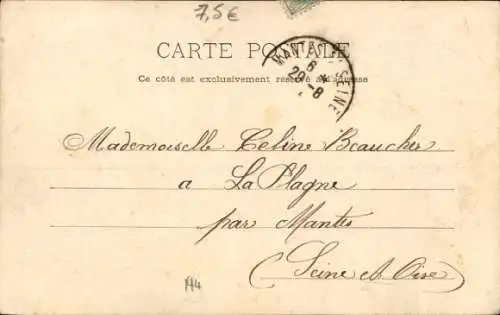 7,5€
CARTE POSTALE
Ce côté est exclusivement réservé à l'adresse
MANTES SEINE
6 *
29 - 8
Mademoiselle Celine Beaucher
a La Plagne
par Mantes
(Seine et Oise)